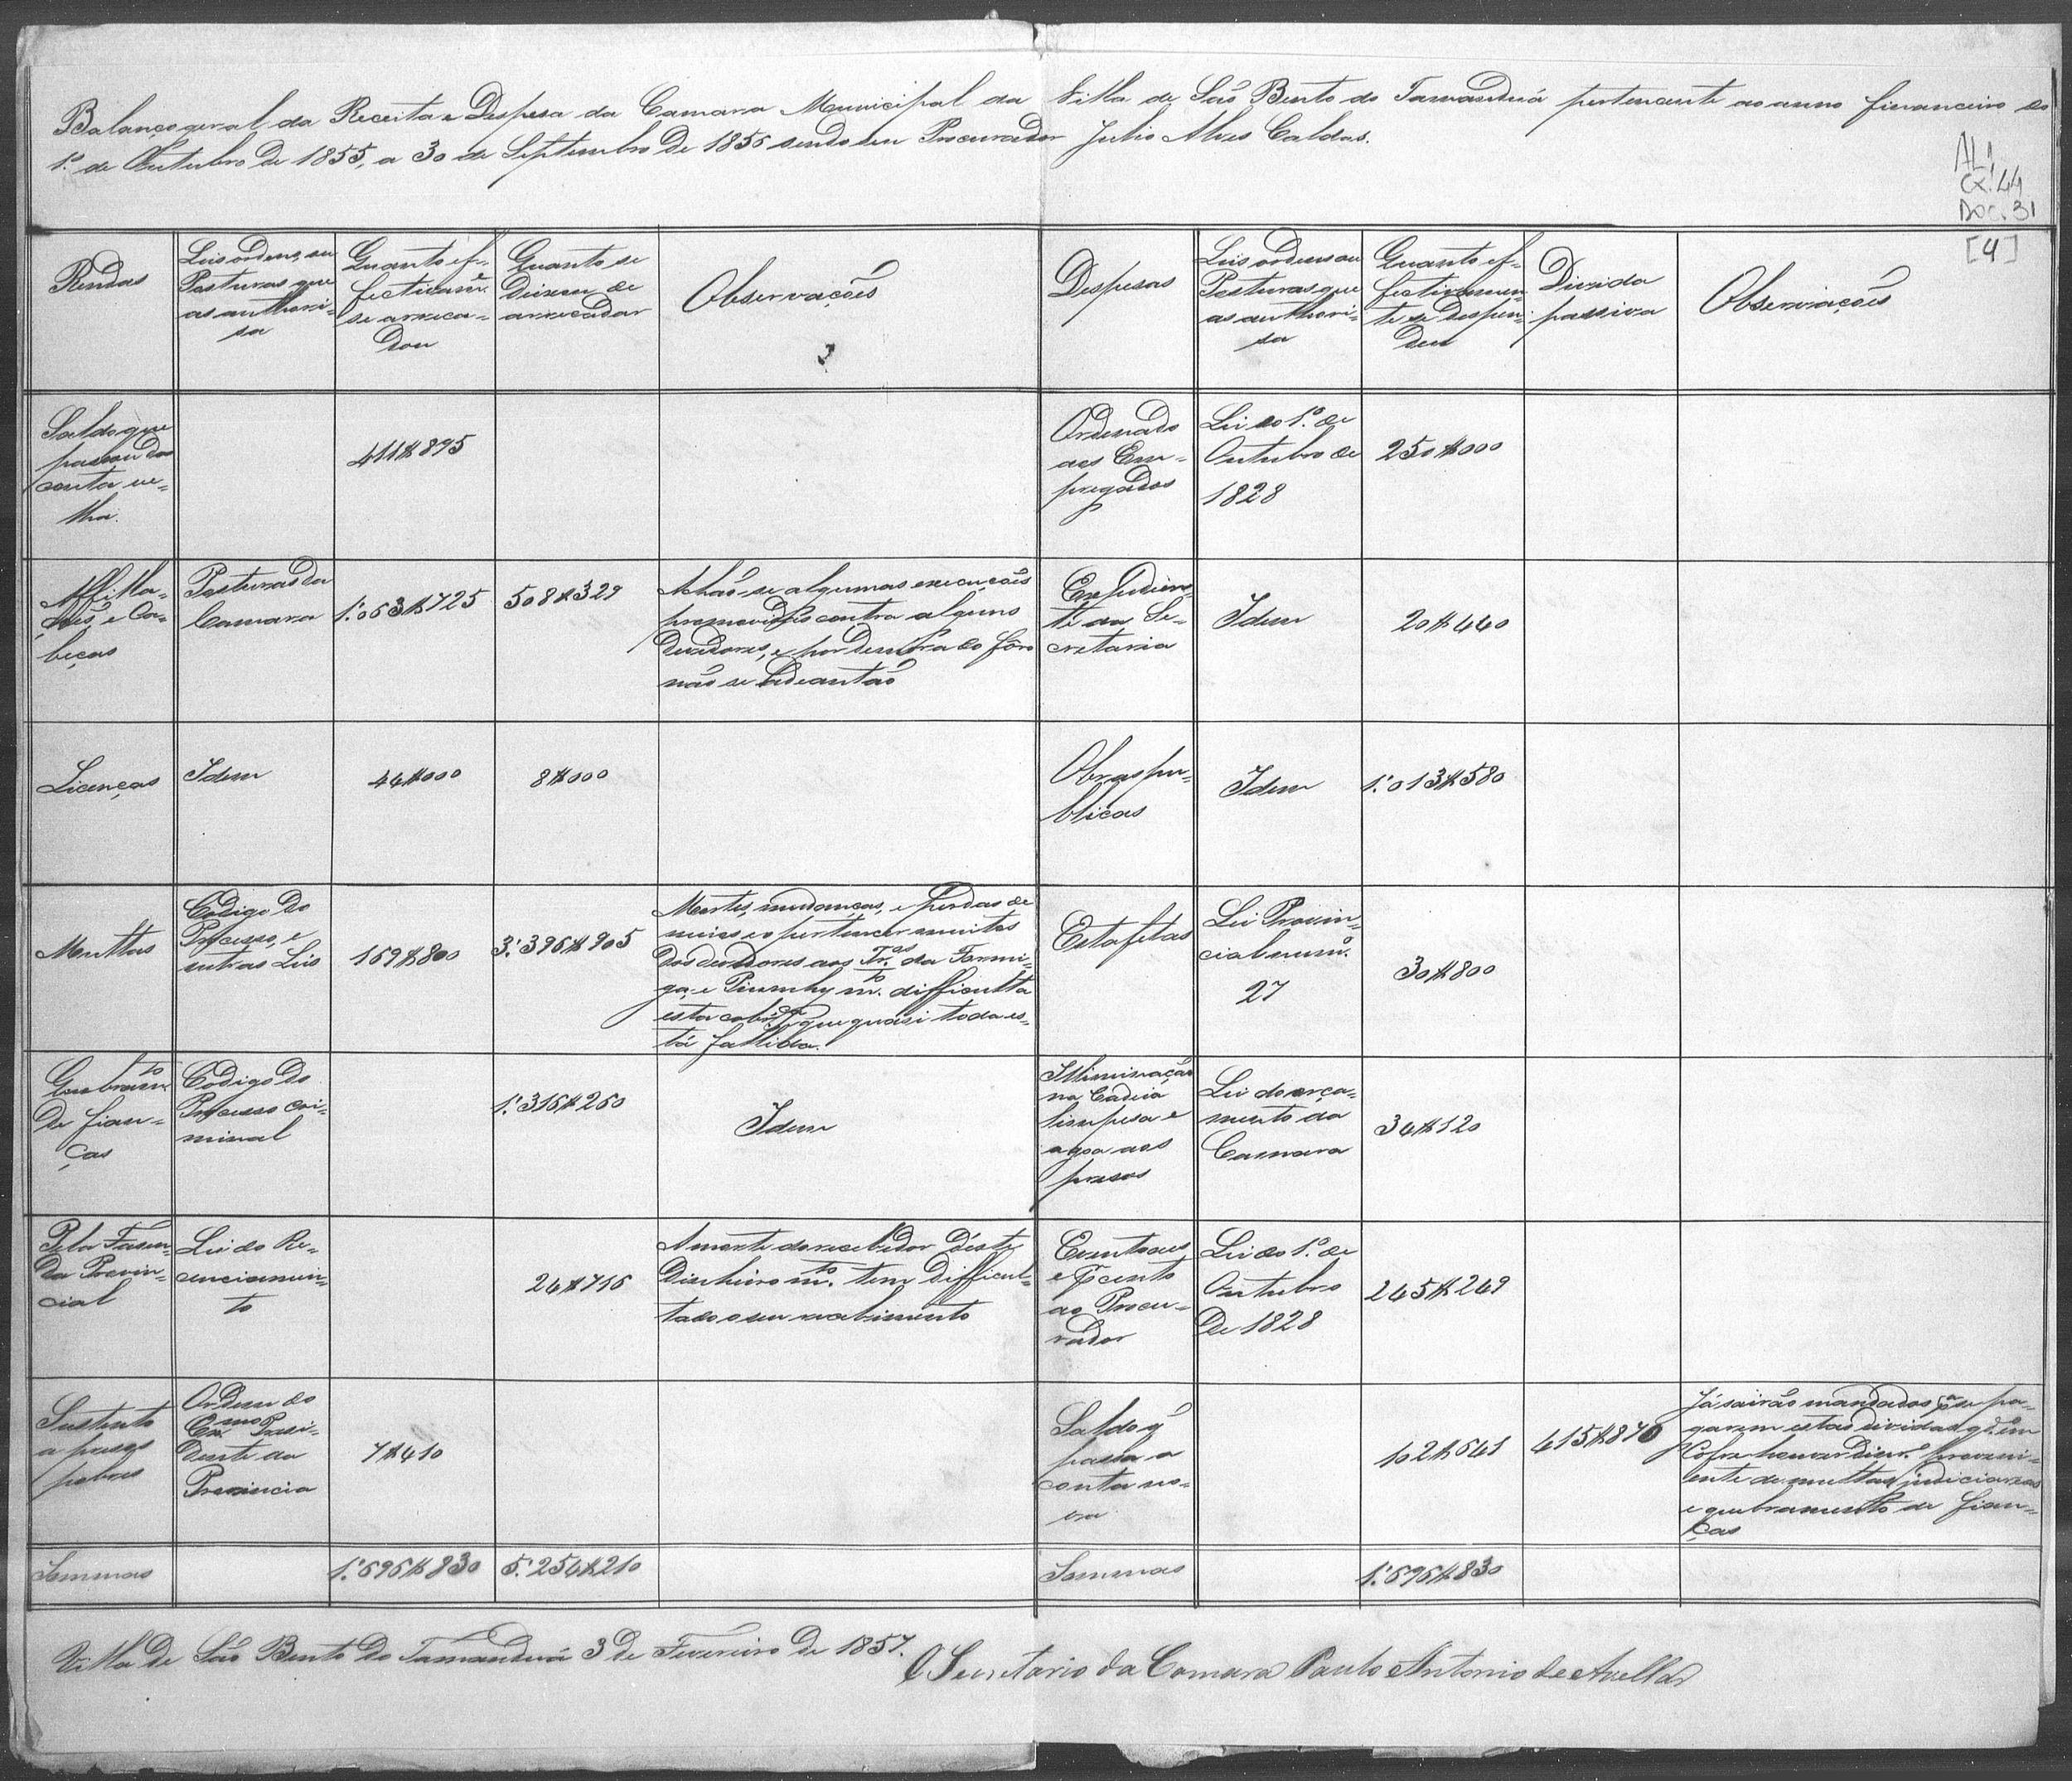 Balanço geral da Receita e Despesa da Camara Municipal da Villa de São Bento do Tamanduá pertencente ao anno financeiro do
1º de Outubro de 1855, a 30 de Septembro de 1856 sendo seu Procurador Julio Alves Caldas.
AL1
CX.44
DOC.31
[4]
Rendas
Leis ordens, ou
Posturas que
as authori=
sa
Quanto ef=
fectivamᵉ
se arreca=
dou
Quanto se
deixou de
arrecadar
Observações
Despesas
Leis ordens ou
Posturas que
as authori=
sa
Quanto ef=
fectivamen=
te se despen=
deu
Divida
passiva
Observações
Saldo que
passou da
conta ve=
lha.
411$895
Ordenado
aos Em=
pregados
Lei do 1º de
Outubro de
1828
250$000
Affilla=
ções, e Ca=
beças
Posturas da
Camara
1:063$725
508$329
Achão-se algumas execuções
promovidas contra alguns
devedores, e por demora do fôro
não se adeantão
Expedien=
te da Se=
cretaria
Idem
20$440
Licenças
Idem
44$000
8$000
Obras pu=
blicas
Idem
1:013$580
Multas
Codigo do
Processo, e
outras Leis
169$800
3:396$905
Mortes, mudanças, e perdas de
meios e o pertencer muitos
dos devedores aos Tr.ᵒˢ da Formi=
ga, e Piumhy m.ᵗᵒ difficulta
esta cobr.ᶜᵃ que quasi toda es=
tá fallida.
Estafetas
Lei Provin=
cial num.º
27
30$800
Quebram.ᵗᵒ
de fian=
ças
Codigo do
Processo cri=
minal
1:316$260
Idem
Illiminação
na Cadeia
limpesa e
agoa aos
presos
Lei do orça=
mento da
Camara
34$120
Pela Fasen=
da Provin=
cial
Lei do Re=
cenciamen=
to
24$716
A morte do recebedor d'éste
dinheiro m.ᵗᵒ tem difficul=
tado o seu recebimento
Eventuaes
e p cento
ao Procu=
rador
Lei do 1º de
Outubro
de 1828
245$249
Sustento
a presos
pobres
Ordem do
Ex.ᵐᵒ Presi=
dente da
Provincia
7$410
Saldo q̃
passa a
conta no=
va
102$641
415$876
Já sairão mandados pª se pa=
garem estas dividas q.ᵈᵒ em
Cofre houver dinr.º proveni=
ente de multas judiciarias
e quebramento de fian=
ças
Sommas
1:696$830
5:254$210
Sommas
1:696$830
Villa de São Bento do Tamanduá 3 de Fevereiro de 1857.
O Secretario da Camara Paulo Antonio de Avellar